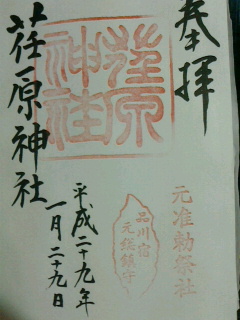 奉拝
元准勅祭社
荏原神社
品川宿
元総鎮守
平成二十九年
一月二十九日
荏原神社